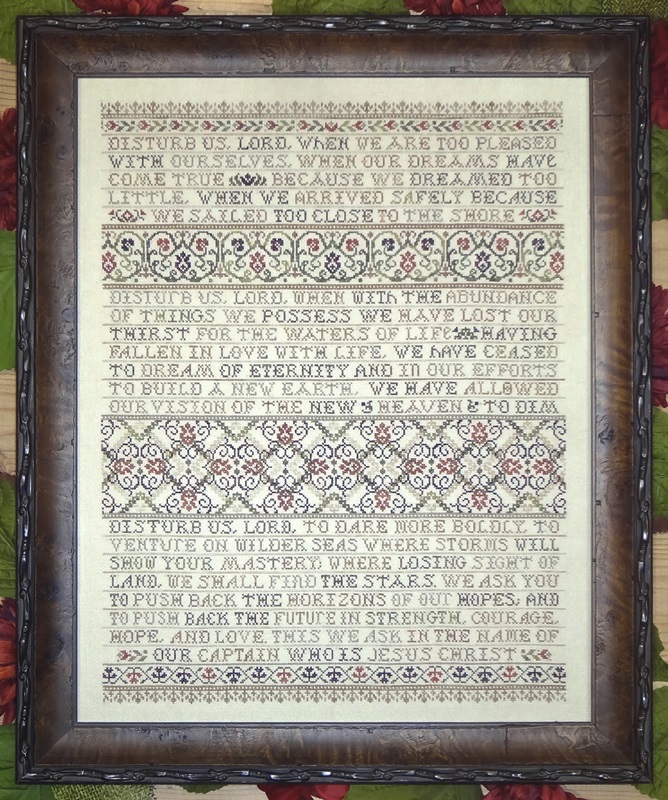 DISTURB US, LORD, WhEN WE ARE TOO PLEASED
WITH OURSELVES, WHEN OUR DREAMS HAVE
COME TRUE BECAUSE WE DREAMED TOO
LITTLE, WHEN WE ARRIVED SAFELY BECAUSE
WE SAILED TOO CLOSE TO THE SHORE
DISTURB US, LORD, WHEN WITh THE ABUNDANCE
OF THINGS WE POSSESS WE HAVE LOST OUR
THIRST FOR THE WATERS OF LIFE HAVING
FALLEN IN LOVE WITH LIFE, WE hAVE CEASED
TO DREAM OF ETERNITY AND IN OUR EFFORTS
TO BUILD A NEW EARTH, WE HAVE ALLOWED
OUR VISION OF THE NEW HEAVEN TO DIM
DISTURB US, LORD, TO DARE MORE BOLDLY, TO
VENTURE ON WILDER SEAS WHERE STORMS WILL
SHOW YOUR MASTERY; WHERE LOSING SIGHT OF
LAND, WE SHALL FIND THE STARS. WE ASK YOU
TO PUSH BACK THE HORIZONS OF OUR HOPES; AND
TO PUSH BACK THE FUTURE IN STRENGTH, COURAGE,
HOPE, AND LOVE. THIS WE ASK IN THE NAME OF
OUR CAPTAIN WHO IS JESUS CHRIST